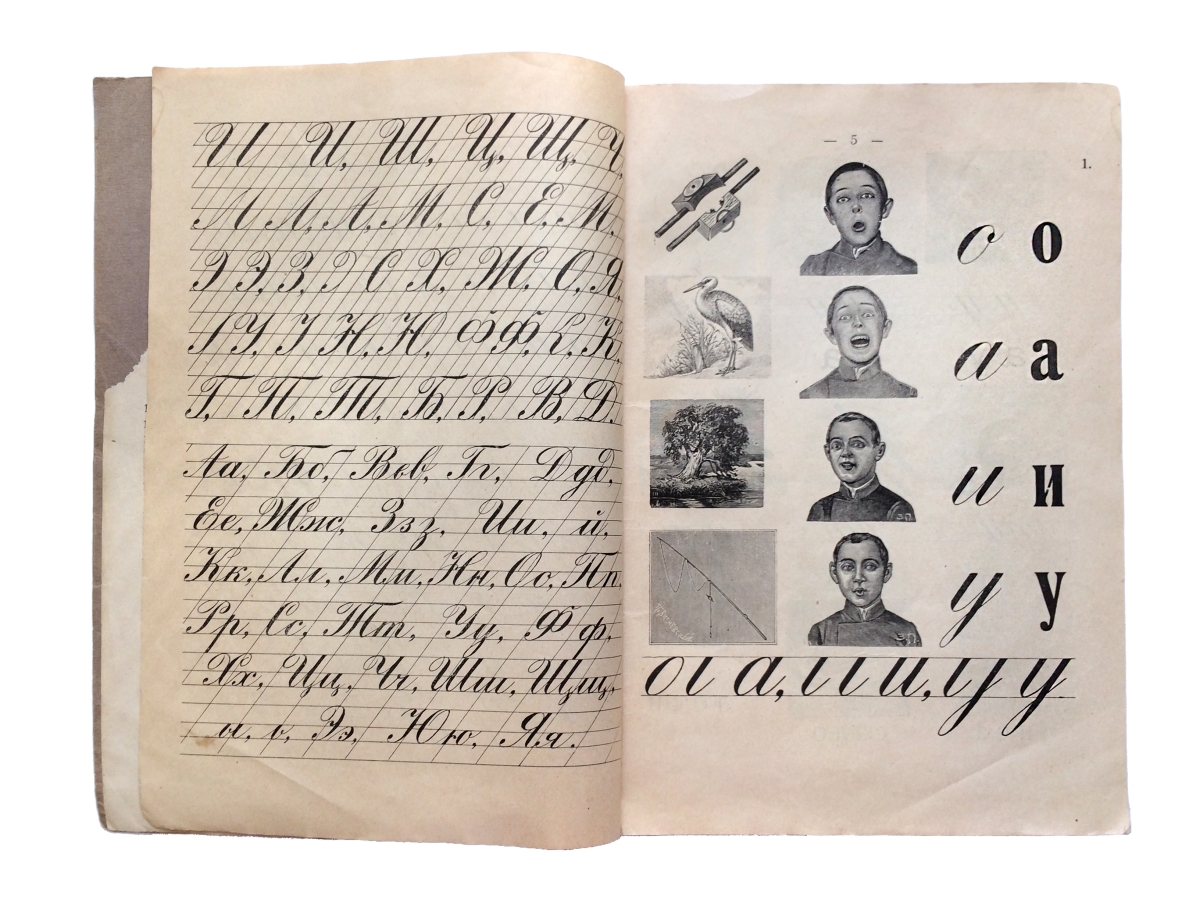 И И, Ш, Ц, Щ, Ч
Л Л, А, М, С, Е, М,
Э Э, З, Э С Х, Ж, О, Я,
У, Н, Ю, Ф, К
Г, П, Т, Б, Р, В, Д,
Аа, Бб, Ввв, Гг, Ддд,
Ее, Жж, Ззз, Ии, й,
Кк, Лл, Мм, Нн, Оо, Пп
Рр, Сс, Тт, Уу, Фф,
Хх, Цц, Чч, Шш, Щщ,
ы, ь, Ээ, Юю, Яя.
— 5 —
1.
о о
а а
и и
у у
а, и, у